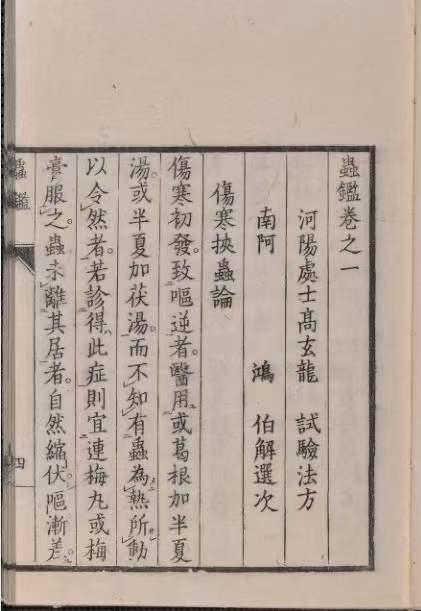 蟲鑑卷之一
河陽處士高玄龍 試驗法方
南阿 鴻 伯解選次
傷寒挾蟲論
傷寒初發致嘔逆者。醫用或葛根加半夏
湯。或半夏加茯湯。而不知有蟲為熱所動
以令然者。若診得此症則宜連梅丸或梅
膏服之。蟲未離其居者。自然縮伏。嘔漸差。
蟲鑑
四